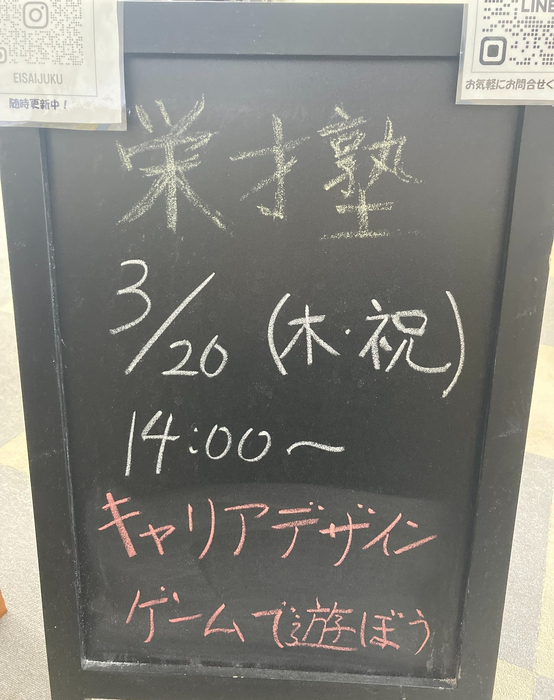 EISAIJUKU
随時更新中！
LINE
お気軽にお問合せく
栄才塾
3/20（木・祝）
14:00〜
キャリアデザイン
ゲームで遊ぼう